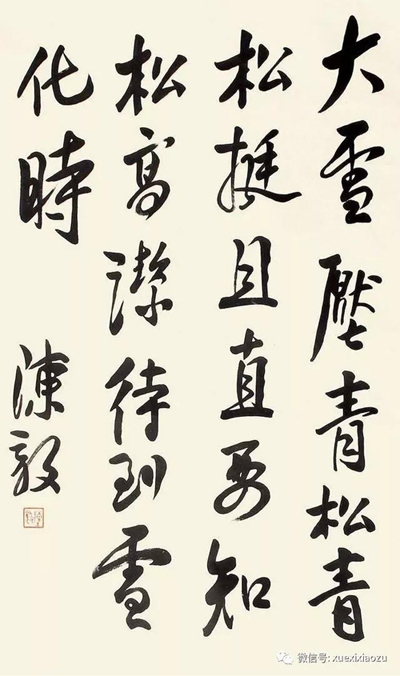 大雪壓青松青
松挺且直要知
松高潔待到雪
化時
陳毅
微信号: xuexixiaozu